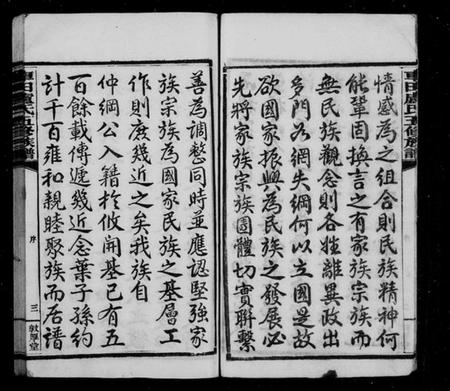 車田盧氏五修族譜
情感為之組合則民族精神何
能鞏固換言之有家族宗族而
無民族觀念則各姓離異政出
多門為綱失綱何以立國是故
欲國家振興為民族之發展必
先將家族宗族團體切實聯繫
善為調整同時並應認堅強家
族宗族為國家民族之基層工
作則庶幾近之矣我族自
仲綱公入籍於攸開基已有五
百餘載傳遞幾近念葉子孫約
計千百雍和親睦聚族而居譜
車田盧氏五修族譜
序
三
敦厚堂